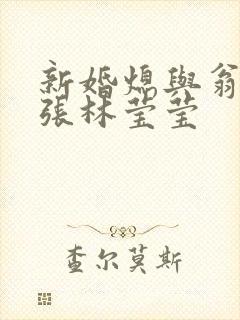 新婚媳與翁
張林莹莹
查尔莫斯